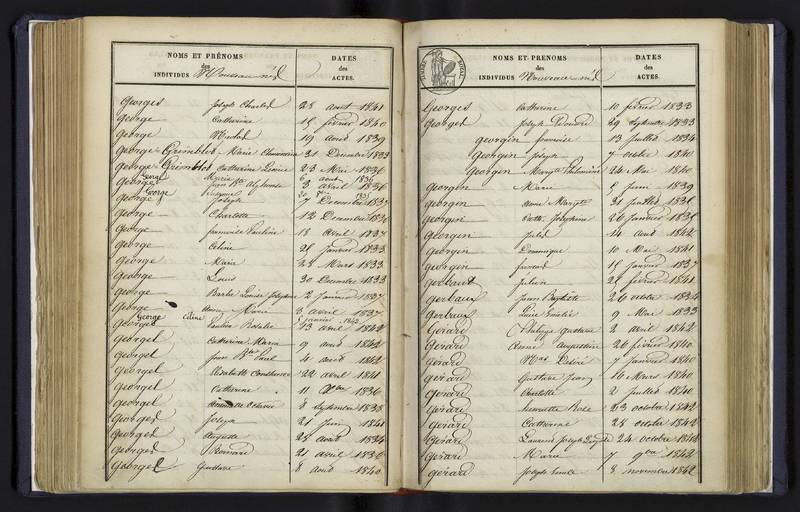 NOMS ET PRÉNOMS
des
INDIVIDUS Nouveau-nés
DATES
des
ACTES.
Georges Joseph Charles 28 août 1841
George Catherine 15 février 1840
George Nicolas 19 août 1839
George-Grimblot Marie Clémentine 31 Décembre 1832
George-Grimblot Catherine Louise 23 Mai 1836
George Marie août 1836
George Jean Bte Alphonse 3 avril 1836
George 1835
George Joseph 7 Décembre 1837
George Charlotte 12 Décembre 1836
George Françoise Pauline 18 avril 1837
George Céline 25 janvier 1833
George Marie 28 Mars 1833
George Louis 30 Décembre 1833
George Barbe Louise Joséphine 2 Janvier 1837
George Marie 3 avril 1837
George Céline janvier 1842
Georgel Pauline Rosalie 23 avril 1842
Georgel Catherine Maria 9 avril 1842
Georgel Jean Bte Paul 4 août 1842
Georgel Elisabeth Constance 22 avril 1841
Georgel Catherine 11 1836
Georgel Octavie 8 Septembre 1838
Georgel Joseph 21 Juin 1841
Georgel Auguste 28 août 1834
Georgel Romary 21 avril 1836
Georgel Gustave 8 août 1840
NOMS ET PRENOMS
des
INDIVIDUS Nouveau-nés
DATES
des
ACTES.
Georges Catherine 10 février 1833
Georgel Joseph 29 septembre 1833
Georgin françoise 13 Juillet 1834
Georgin Joseph 7 octobre 1840
Georgin Margte Philomène 24 Mai 1840
Georgin Marie 5 Juin 1839
Georgin anne Margte 31 juillet 1836
Georgin Cath. Joséphine 26 Janvier 1835
Georgin Jules 14 août 1842
Georgin Dominique 10 Mai 1841
Georgin 15 Janvier 1837
Gerbaut Julien 27 février 1841
Gerbaux Jean Baptiste 26 octobre 1834
Gerbaux Lucie Emélie 9 Mai 1833
Gérard Philippe Gustave 2 avril 1842
Gérard Anne Augustine 26 février 1840
Gérard Nas Désiré 7 Janvier 1840
Gérard Gustave Jean 16 Mars 1840
Gérard Charlotte 2 juillet 1840
Gérard henriette Rose 23 octobre 1842
Gérard Catherine 28 octobre 1842
Gérard Laurent Joseph 24 octobre 1842
Gérard Marie 7 9bre 1842
Gérard Joseph Emile 8 novembre 1842